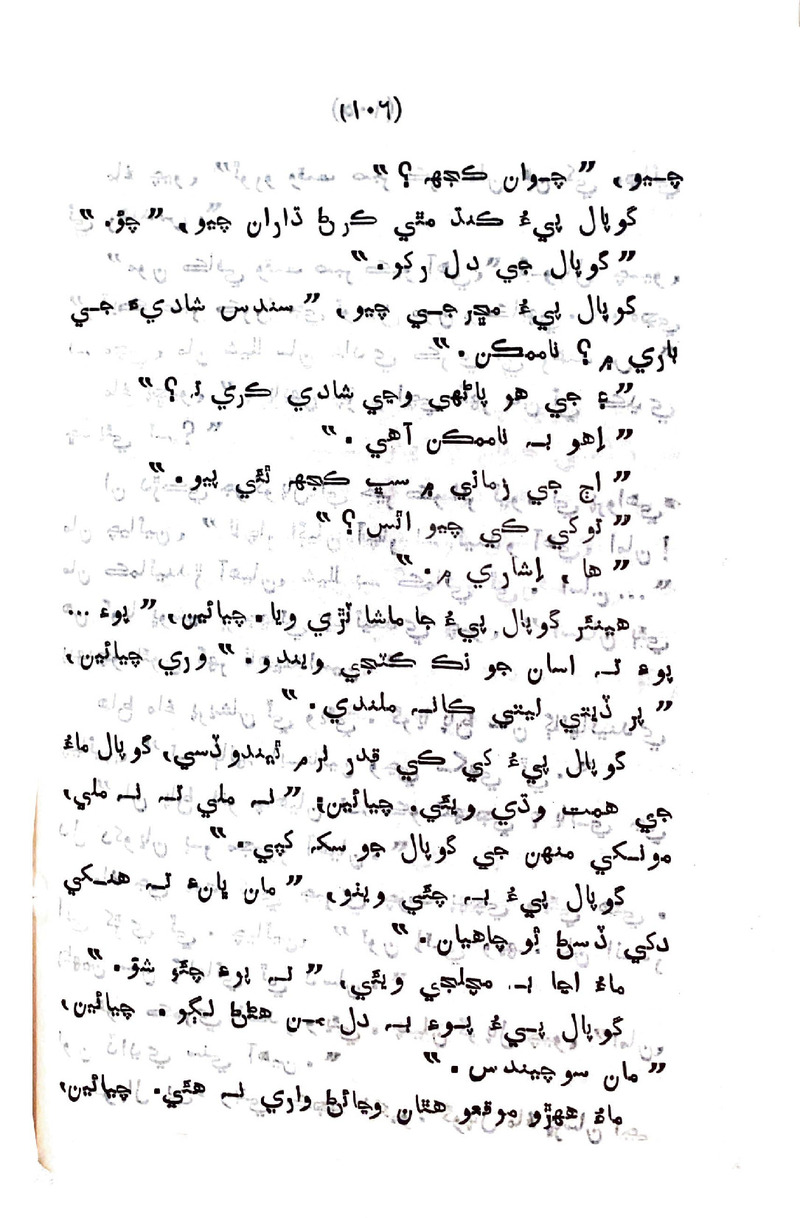 (١٠٦)
چيو، ”چوان ڪجهه؟“
گوپال پيءُ ڪنڌ مٿي ڪرڻ ڌاران چيو، ”چؤ.“
”گوپال جي دل رکو.“
گوپال پيءُ مڇرجي چيو، ”سندس شاديءَ جي
باري ۾؟ ناممڪن.“
”۽ جي هو پاڻهي وڃي شادي ڪري ته؟“
”اهو به ناممڪن آهي.“
”اڄ جي زماني ۾ سڀ ڪجهه ٿئي پيو.“
”توکي ڪي چيو اٿس؟“
”ها، اِشاري ۾.“
هينئر گوپال پيءُ جا ماشا ٽڙي ويا. چيائين، ”پوءِ ...
پوءِ ته اسان جو نڪ ڪٽجي ويندو.“ وري چيائين،
”پر ڏيتي ليتي ڪانه ملندي.“
گوپال پيءُ کي ڪي قدر نرم ٿيندو ڏسي، گوپال ماءُ
جي همت وڌي ويئي. چيائين، ”نه ملي ته نه ملي،
مونکي منهن جي گوپال جو سک کپي.“
گوپال پيءُ به چٿي ويٺو، ”مان پاڻ نه هنکي
دکي ڏسڻ ٿو چاهيان.“
ماءُ اڃا به مچلجي ويئي، ”ته پوءِ چئو شؤ.“
گوپال پيءُ پوءِ به دل ۾ هڻڻ لڳو. چيائين،
”مان سوچيندس.“
ماءُ اهڙو موقعو هٿان وڃائڻ واري نه هئي. چيائين،